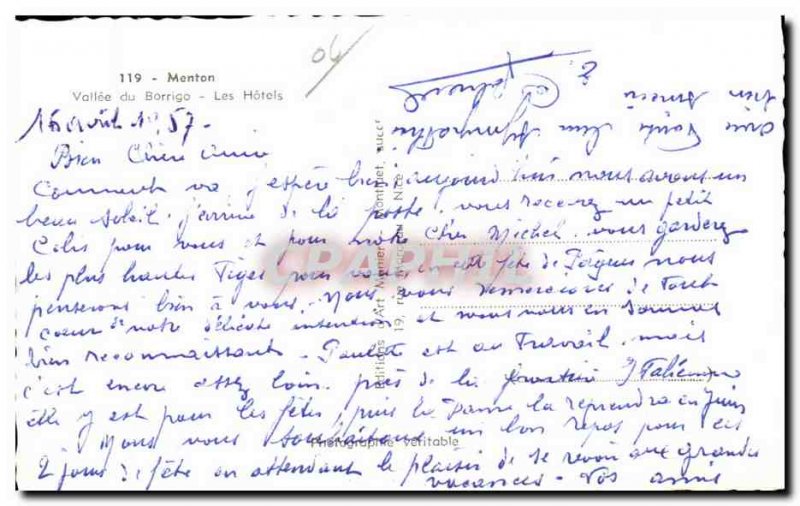 119 - Menton
Vallée du Borrigo - Les Hôtels
06
16 avril 57 -
Bien Chère amie
Comment va j'espère bien aujourd'hui nous avons un
beau soleil. j'arrive de la poste. vous recevrez un petit
Colis pour vous et pour notre Cher Michel. vous garderez
les plus hautes Tiges pour vous en cette fête de Pâques nous
penserons bien à vous. Nous vous remercions de tout
coeur de notre délicate intention et nous nous en sommes
bien reconnaissants - Paulette est au Travail. mais
c'est encore assez loin. près de la frontière Italienne
elle y est pour les fêtes, puis la Dame la reprendra en Juin
Nous vous souhaitons un bon repos pour ces
2 jours de fête en attendant le plaisir de se revoir aux grandes
vacances - Vos amis
avec toute leur sympathie
bien amicale
Editions d'Art Munier
19, rue Nice
Photographie véritable
CPAPHIL